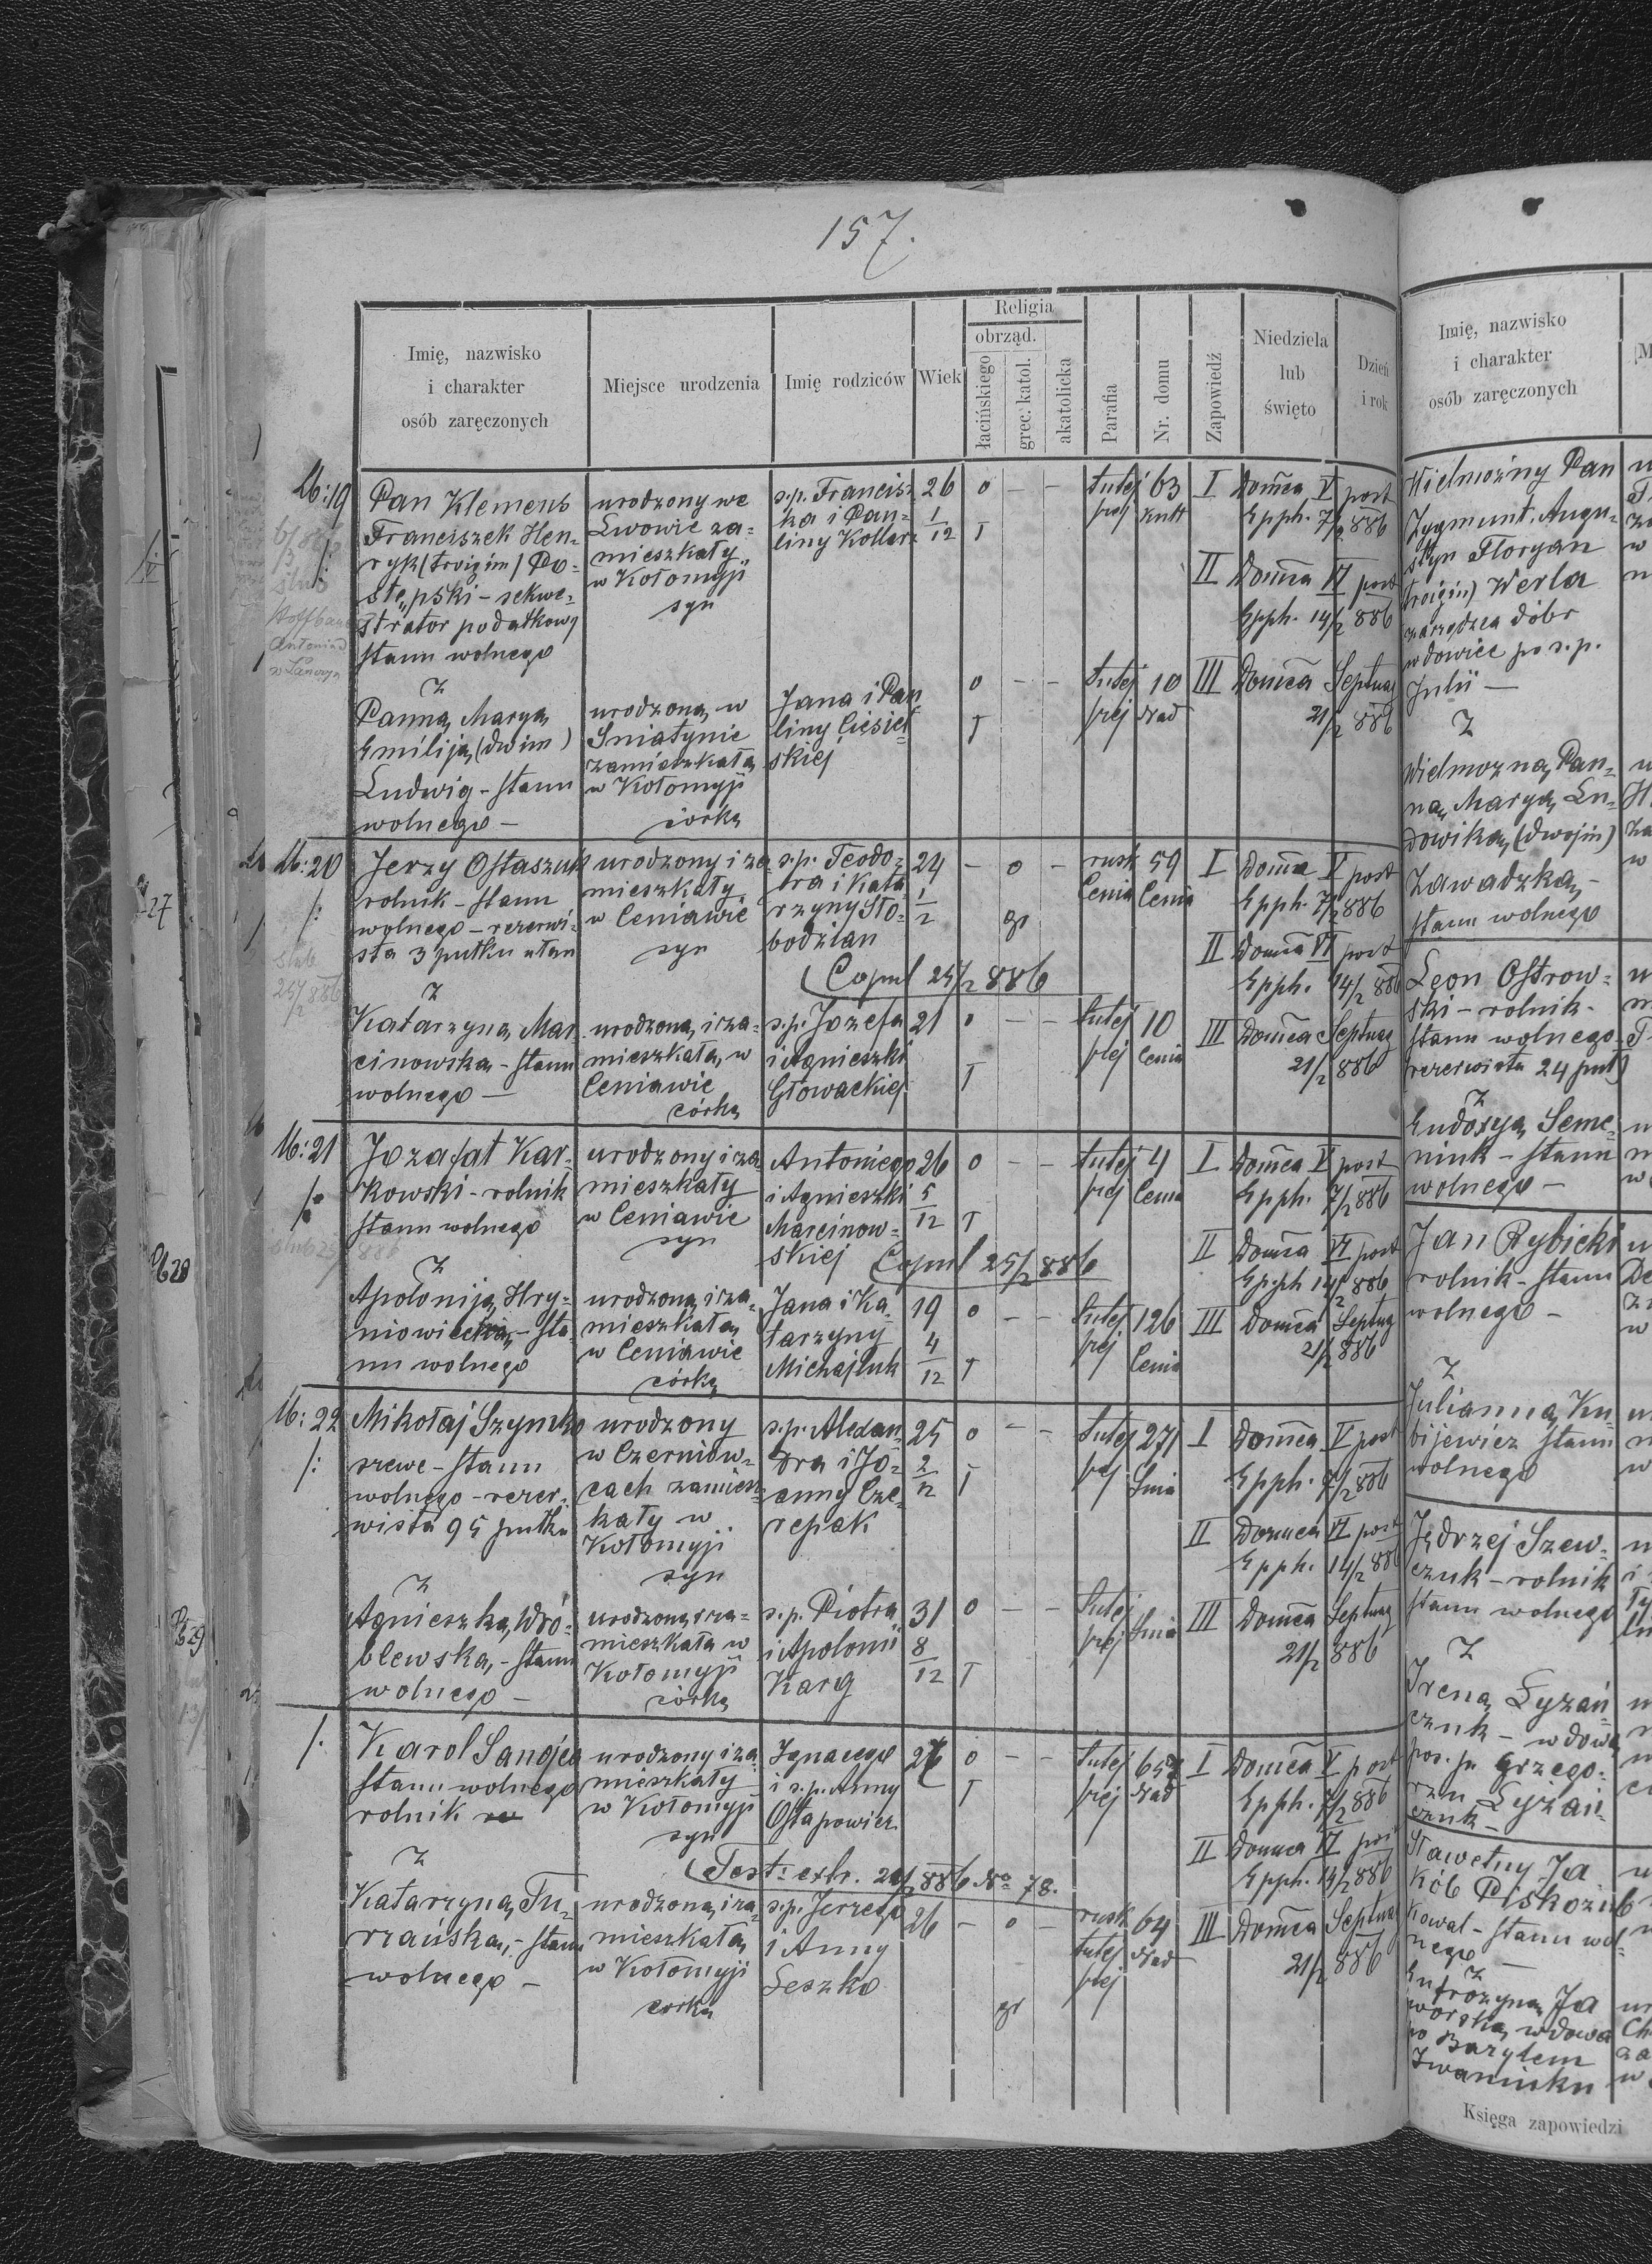 157.
Imię, nazwisko
i charakter
osób zaręczonych
Miejsce urodzenia
Imię rodziców
Wiek
Religia
obrząd.
łacińskiego
grec. katol.
akatolicka
Parafia
Nr. domu
Zapowiedź
Niedziela
lub
święto
Dzień
i rok
19
Pan Klemens
Franciszek Hen-
ryk (troigim) Po-
stępski - sekwe-
strator podatkowy
stanu wolnego
urodzony we
Lwowie za-
mieszkały
w Kołomyji
syn
s.p. Francisz
ka i Pau-
liny Kollarz
26
1/12
o - -
T
tutej 63
szej Kutt
I Domca V post
Epph. 7/2 886
II Domca VI post
Epph. 14/2 886
z
Panna Marya
Emilija (dwim)
Ludwig - stanu
wolnego -
urodzona w
Sniatynie
zamieszkała
w Kołomyji
córka
Jana i Pau
liny Ciesiel
skiej
o - -
T
tutej 10
szej Nad
III Domca Septuag
21/2 886
20
Jerzy Ostaszuk
rolnik - stanu
wolnego - rezerwi-
sta 3 pułku ułan
urodzony i za
mieszkały
w Ceniawie
syn
s.p. Teodo-
ra i Kata
rzyny Sło-
bodzian
24
1/2
- o -
gr
rusk 59
Cenia Cenia
I Domca V post
Epph. 7/2 886
II Domca VI post
Epph. 14/2 886
Copul 25/2 886
z
Katarzyna Mar
cinowska - stanu
wolnego -
urodzona i za-
mieszkała w
Ceniawie
córka
s.p. Jozefa
i Agnieszki
Głowackiej
21
o - -
T
tutej 10
szej Cenia
III Domca Septuag
21/2 886
21
Jozafat Kar-
kowski - rolnik
stanu wolnego
urodzony i za
mieszkały
w Ceniawie
syn
Antoniego
i Agnieszki
Marcinow-
skiej
26
5/12
o - -
T
tutej 4
szej Cenia
I Domca V post
Epph. 7/2 886
II Domca VI post
Epph 14/2 886
Copul 25/2 886
z
Apolonija Hry-
niowiecka - sta-
nu wolnego
urodzona i za-
mieszkała
w Ceniawie
córka
Jana i Ka-
tarzyny
Michajluk
19
4/12
o - -
T
tutej 126
szej Cenia
III Domca Septuag
21/2 886
22
Mikołaj Szymko
szewe - stanu
wolnego - rezer-
wista 95 pułku
urodzony
w Czerniow-
cach zamiesz-
kały w
Kołomyji
syn
s.p. Alexan-
dra i Jo-
anny Cze-
repak
25
2/12
o - -
T
tutej 271
szej Snia
I Domca V post
Epph. 7/2 886
II Domca VI post
Epph. 14/2 886
z
Agnieszka Wró-
blewska - stanu
wolnego -
urodzona i za-
mieszkała w
Kołomyji
córka
s.p. Piotra
i Apolonii
Karg
31
8/12
o - -
T
tutej
szej Snia
III Domca Septuag
21/2 886
Karol Sanojca
stanu wolnego
rolnik
urodzony i za
mieszkały
w Kołomyji
syn
Ignacego
i s.p. Anny
Ostapowicz
26
o - -
T
tutej 652
szej Nad
I Domca V post
Epph. 7/2 886
II Domca VI post
Epph. 14/2 886
Test. extr. 24/2 886 No 78.
z
Katarzyna Tu-
rzańska - stanu
wolnego -
urodzona i za-
mieszkała
w Kołomyji
corka
s.p. Jerzego
i Anny
Leszko
26
- o -
gr
rusk 64
tutej Nad
szej
III Domca Septuag
21/2 886
Imię, nazwisko
i charakter
osób zaręczonych
Wielmożny Pan
Zygmunt Augu-
styn Floryan
(troigin) Werla
zarządca dóbr
wdowiec po s.p.
Julii -
z
Wielmozna Pan-
na Marya Lu-
dowika (dwojin)
Zawadzka -
stanu wolnego
Leon Ostrow-
ski - rolnik -
stanu wolnego
rezerwista 24 puł
z
Eudosya Seme-
niuk - stanu
wolnego -
Jan Rybicki
rolnik - stanu
wolnego -
z
Julianna Ku-
bijewicz stanu
wolnego
Jędrzej Szew-
czuk - rolnik
stanu wolnego
z
Irena Łyzań
czuk - wdowa
pos. po Grzego-
rzu Łyzań-
czuk -
Sławetny Ja
kób Piskozub
kowal - stanu wol-
nego -
z
Eufrozyna Ja
worska wdowa
po Bazylem
Iwaniuku
Księga zapowiedzi